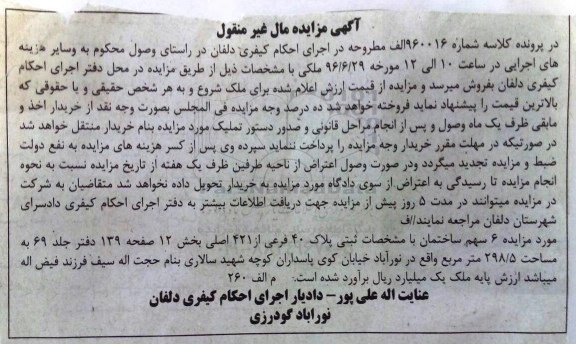 آگهی مزایده مال غیر منقول
در پرونده کلاسه شماره ۹۶۰۰۱۶الف مطروحه در اجرای احکام کیفری دلفان در راستای وصول محکوم به وسایر هزینه
های اجرایی در ساعت ۱۰ الی ۱۲ مورخه ۹۶/۶/۲۹ ملکی با مشخصات ذیل از طریق مزایده در محل دفتر اجرای احکام
کیفری دلفان بفروش میرسد و مزایده از قیمت ارزش اعلام شده برای ملک شروع و به هر شخص حقیقی و یا حقوقی که
بالاترین قیمت را پیشنهاد نماید فروخته خواهد شد ده درصد وجه مزایده فی المجلس بصورت وجه نقد از خریدار اخذ و
مابقی ظرف یک ماه وصول و پس از انجام مراحل قانونی و صدور دستور تملیک مورد مزایده بنام خریدار منتقل خواهد شد
در صورتیکه در مهلت مقرر خریدار وجه مزایده را پرداخت ننماید سپرده وی پس از کسر هزینه های مزایده به نفع دولت
ضبط و مزایده تجدید میگردد ودر صورت وصول اعتراض از ناحیه طرفین ظرف یک هفته از تاریخ مزایده نسبت به نحوه
انجام مزایده تا رسیدگی به اعتراض از سوی دادگاه مورد مزایده به خریدار تحویل داده نخواهد شد متقاضیان به شرکت
در مزایده میتوانند در مدت ۵ روز پیش از مزایده جهت دریافت اطلاعات بیشتر به دفتر اجرای احکام کیفری دادسرای
شهرستان دلفان مراجعه نمایند//ف
مورد مزایده ۶ سهم ساختمان با مشخصات ثبتی پلاک ۴۰ فرعی از۴۲۱ اصلی بخش ۱۲ صفحه ۱۳۹ دفتر جلد ۶۹ به
مساحت ۲۹۸/۵ متر مربع واقع در نورآباد خیابان کوی پاسداران کوچه شهید سالاری بنام حجت اله سیف فرزند فیض اله
میباشد ارزش پایه ملک یک میلیارد ریال برآورد شده است. م الف ۲۶۰
عنایت اله علی پور- دادیار اجرای احکام کیفری دلفان
نوراباد گودرزی